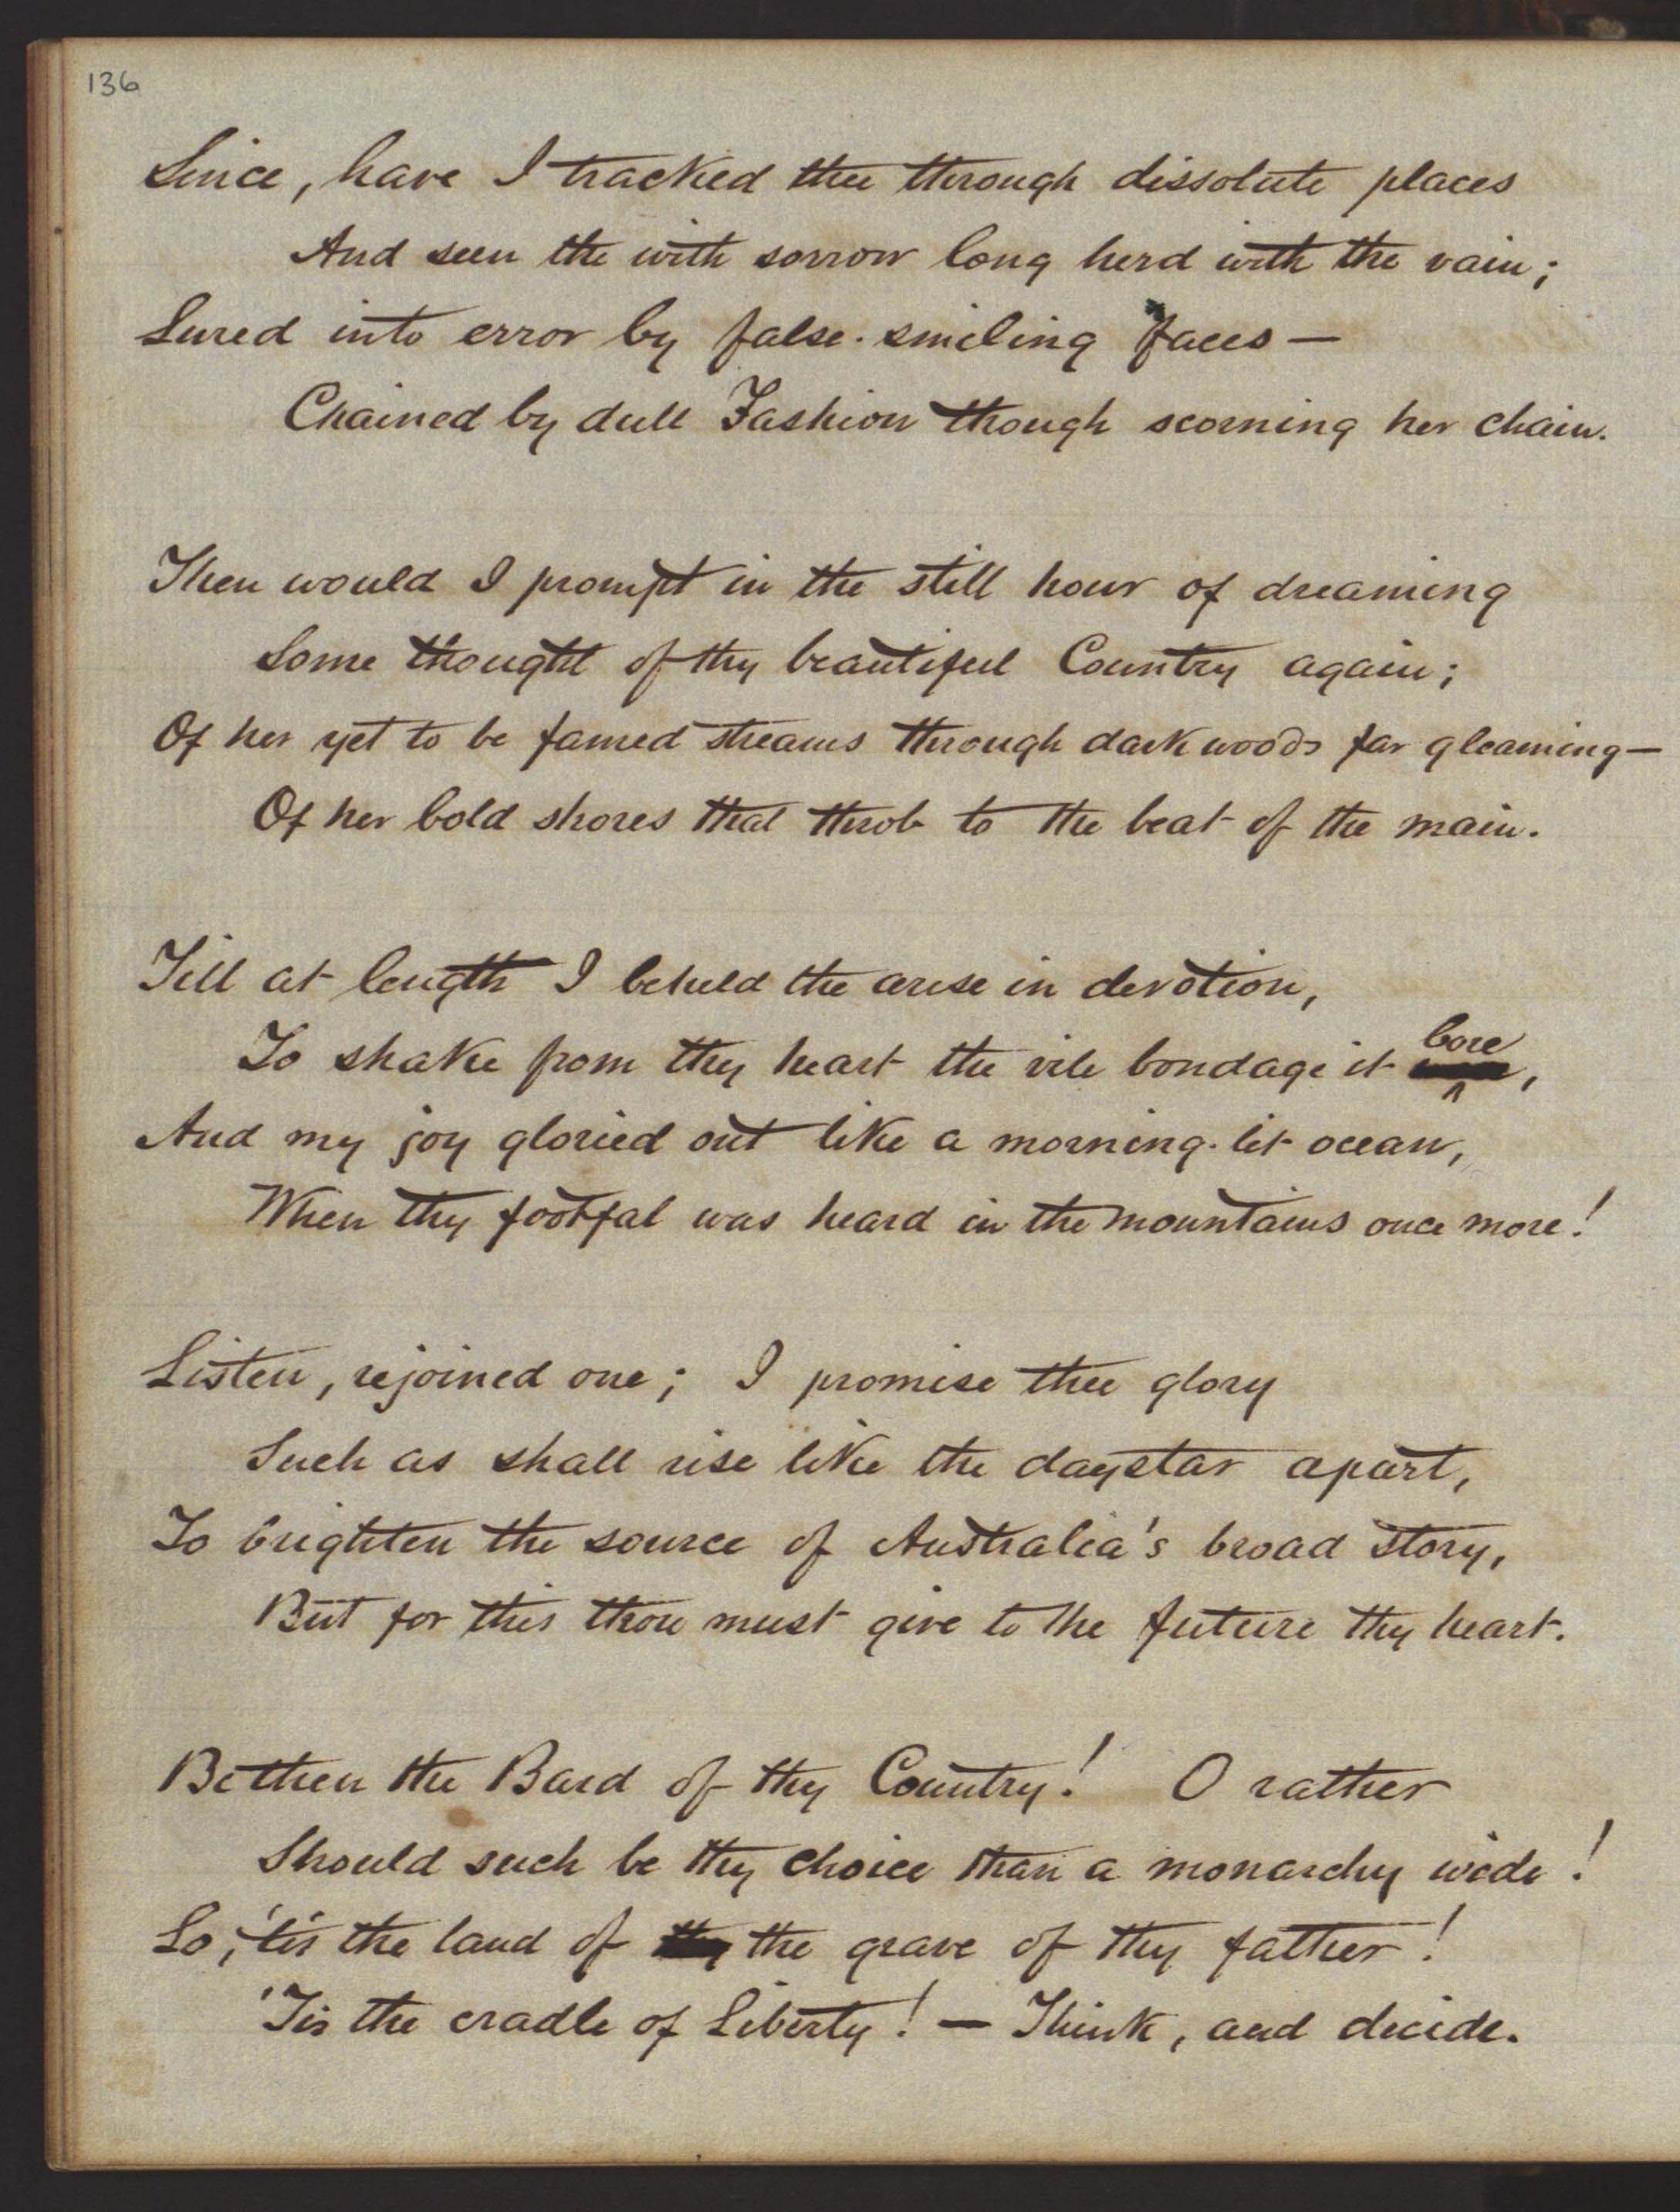 136
Since, have I tracked thee through dissolute places
And seen the with sorrow long herd with the vain;
Lured into error by false-smiling faces —
Chained by dull Fashion though scorning her chain.
Then would I prompt in the still hour of dreaming
Some thought of thy beautiful Country again;
Of her yet to be famed streams through dark woods far gleaming —
Of her bold shores that throb to the beat of the main.
Till at length I beheld the arise in devotion,
To shake from thy heart the vile bondage it bore,
And my joy gloried out like a morning-lit ocean,
When thy footfal was heard in the mountains once more!
Listen, rejoined one; I promise thee glory
Such as shall rise like the daystar apart,
To brighten the source of Australia's broad story,
But for this thou must give to the future thy heart.
Be then the Bard of thy Country! O rather
Should such be thy choice than a monarchy wide!
Lo, 'tis the land of thy the grave of thy father!
'Tis the cradle of Liberty! — Think, and decide.